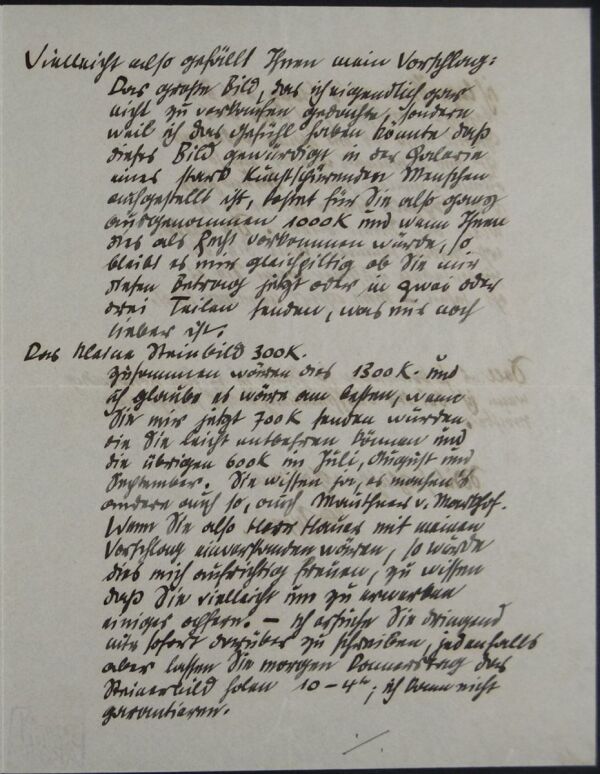 Vielleicht also gefällt Ihnen mein Vorschlag:
Das große Bild, das ich eigendlich gar
nicht zu verkaufen gedachte, sondern
weil ich das Gefühl haben könnte daß
dieses Bild gewürdigt in der Galerie
eines stark kunstspürenden Menschen
aufgestellt ist, kostet für Sie also ganz
ausgenommen 1000K und wenn Ihnen
dies als Recht vorkommen würde, so
bleibt es mir gleichgiltig ob Sie mir
diesen Betrag jetzt oder in zwei oder
drei Teilen senden, was mir noch
lieber ist.
Das kleine Steinbild 300K.
zusammen wären dies 1300K. und
ich glaube es wäre am besten, wenn
Sie mir jetzt 700K senden würden
die Sie leicht entbehren können und
die übrigen 600K im Juli, August und
September. Sie wissen ja, es machen's
andere auch so, auch Mauthner v. Markhof.
Wenn Sie also Herr Hauer mit meinen
Vorschlag einverstanden wären, so würde
dies mich aufrichtig freuen, zu wissen
daß Sie vielleicht um zu erwerben
einiges opfern. – ich ersuche Sie dringend
mir sofort darüber zu schreiben, jedenfalls
aber lassen Sie morgen Donnerstag das
Steinerbild holen 10–4ʰ; ich kann nicht
garantieren.
./.